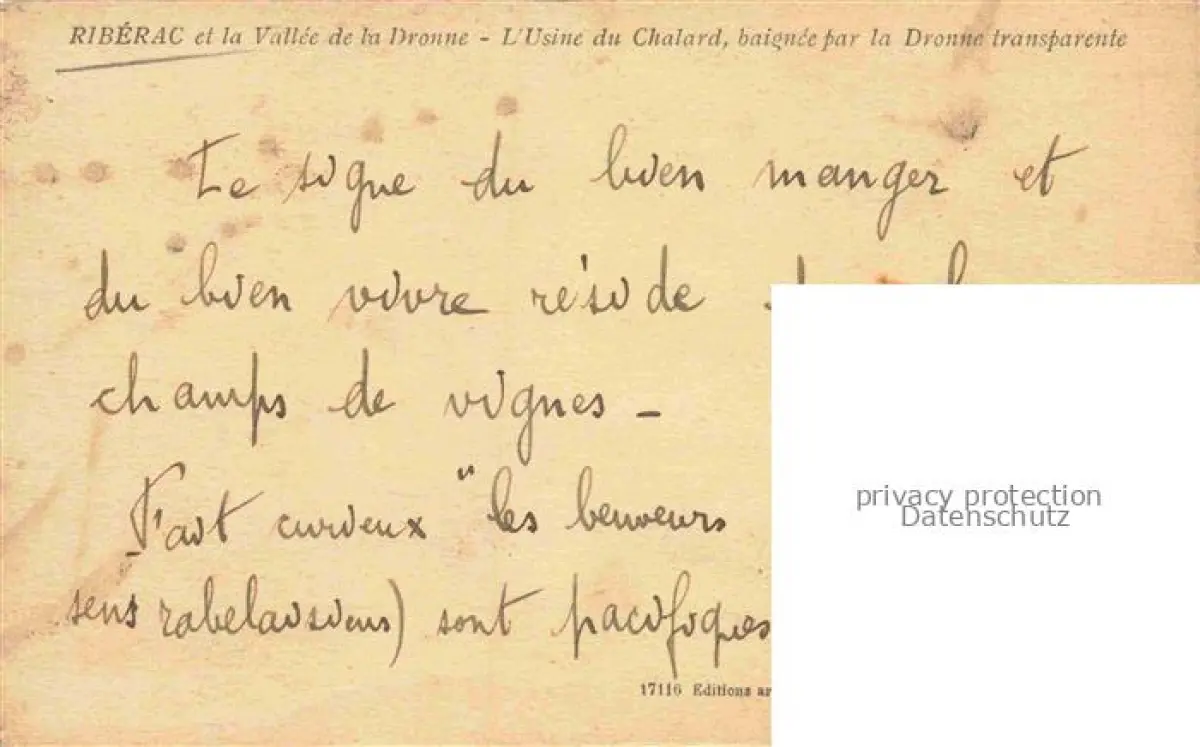 RIBÉRAC et la Vallée de la Dronne - L'Usine du Chalard, baignée par la Dronne transparente
Le signe du bien manger et
du bien vivre réside
champs de vignes -
Fait curieux "les beuveurs
sens rabelaisiens) sont pacifiques
17116 Editions
privacy protection
Datenschutz